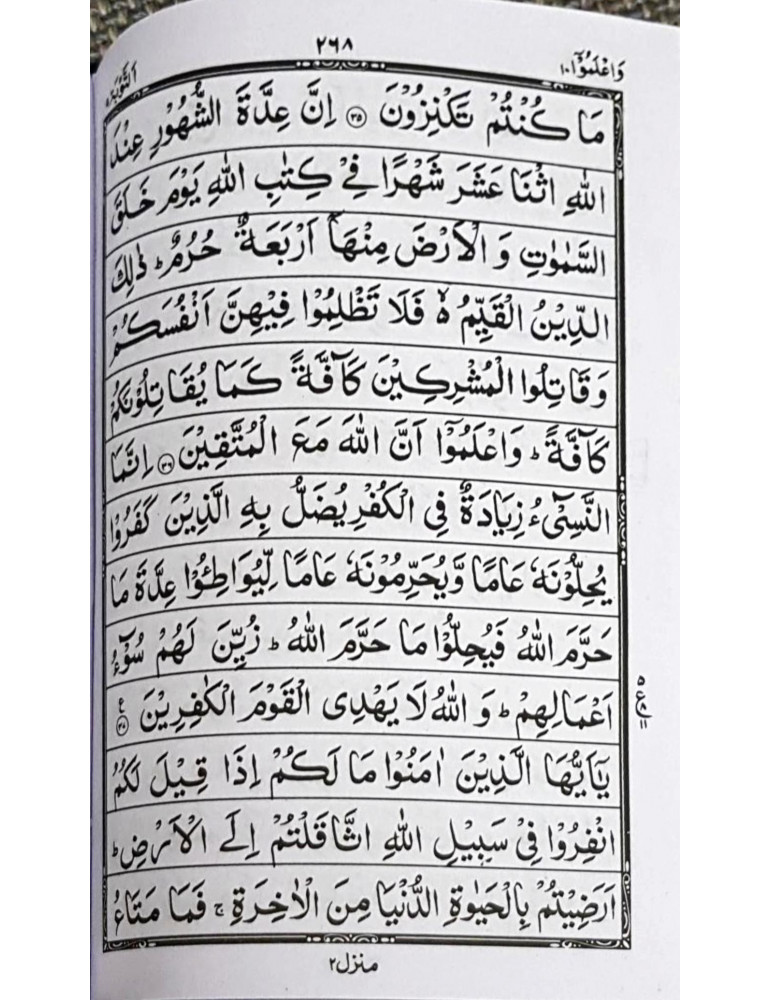 وَاعْلَمُوْۤا ١٠
٢٦٨
اَلتَّوْبَة ٩
مَا كُنْتُمْ تَكْنِزُوْنَ ﴿٣٥﴾ اِنَّ عِدَّةَ الشُّهُوْرِ عِنْدَ
اللّٰهِ اثْنَا عَشَرَ شَهْرًا فِيْ كِتٰبِ اللّٰهِ يَوْمَ خَلَقَ
السَّمٰوٰتِ وَ الْاَرْضَ مِنْهَاۤ اَرْبَعَةٌ حُرُمٌ ؕ ذٰلِكَ
الدِّيْنُ الْقَيِّمُ ۙ۬ فَلَا تَظْلِمُوْا فِيْهِنَّ اَنْفُسَكُمْ
وَ قَاتِلُوا الْمُشْرِكِيْنَ كَآفَّةً كَمَا يُقَاتِلُوْنَكُمْ
كَآفَّةً ؕ وَاعْلَمُوْۤا اَنَّ اللّٰهَ مَعَ الْمُتَّقِيْنَ ﴿٣٦﴾ اِنَّمَا
النَّسِيْٓءُ زِيَادَةٌ فِي الْكُفْرِ يُضَلُّ بِهِ الَّذِيْنَ كَفَرُوْا
يُحِلُّوْنَهٗ عَامًا وَّيُحَرِّمُوْنَهٗ عَامًا لِّيُوَاطِـُٔوْا عِدَّةَ مَا
حَرَّمَ اللّٰهُ فَيُحِلُّوْا مَا حَرَّمَ اللّٰهُ ؕ زُيِّنَ لَهُمْ سُوْٓءُ
اَعْمَالِهِمْ ؕ وَ اللّٰهُ لَا يَهْدِى الْقَوْمَ الْكٰفِرِيْنَ ﴿٣٧﴾ ع
يٰۤاَيُّهَا الَّذِيْنَ اٰمَنُوْا مَا لَكُمْ اِذَا قِيْلَ لَكُمُ
انْفِرُوْا فِيْ سَبِيْلِ اللّٰهِ اثَّاقَلْتُمْ اِلَى الْاَرْضِ ؕ
اَرَضِيْتُمْ بِالْحَيٰوةِ الدُّنْيَا مِنَ الْاٰخِرَةِ ۚ فَمَا مَتَاعُ
منزل ٢